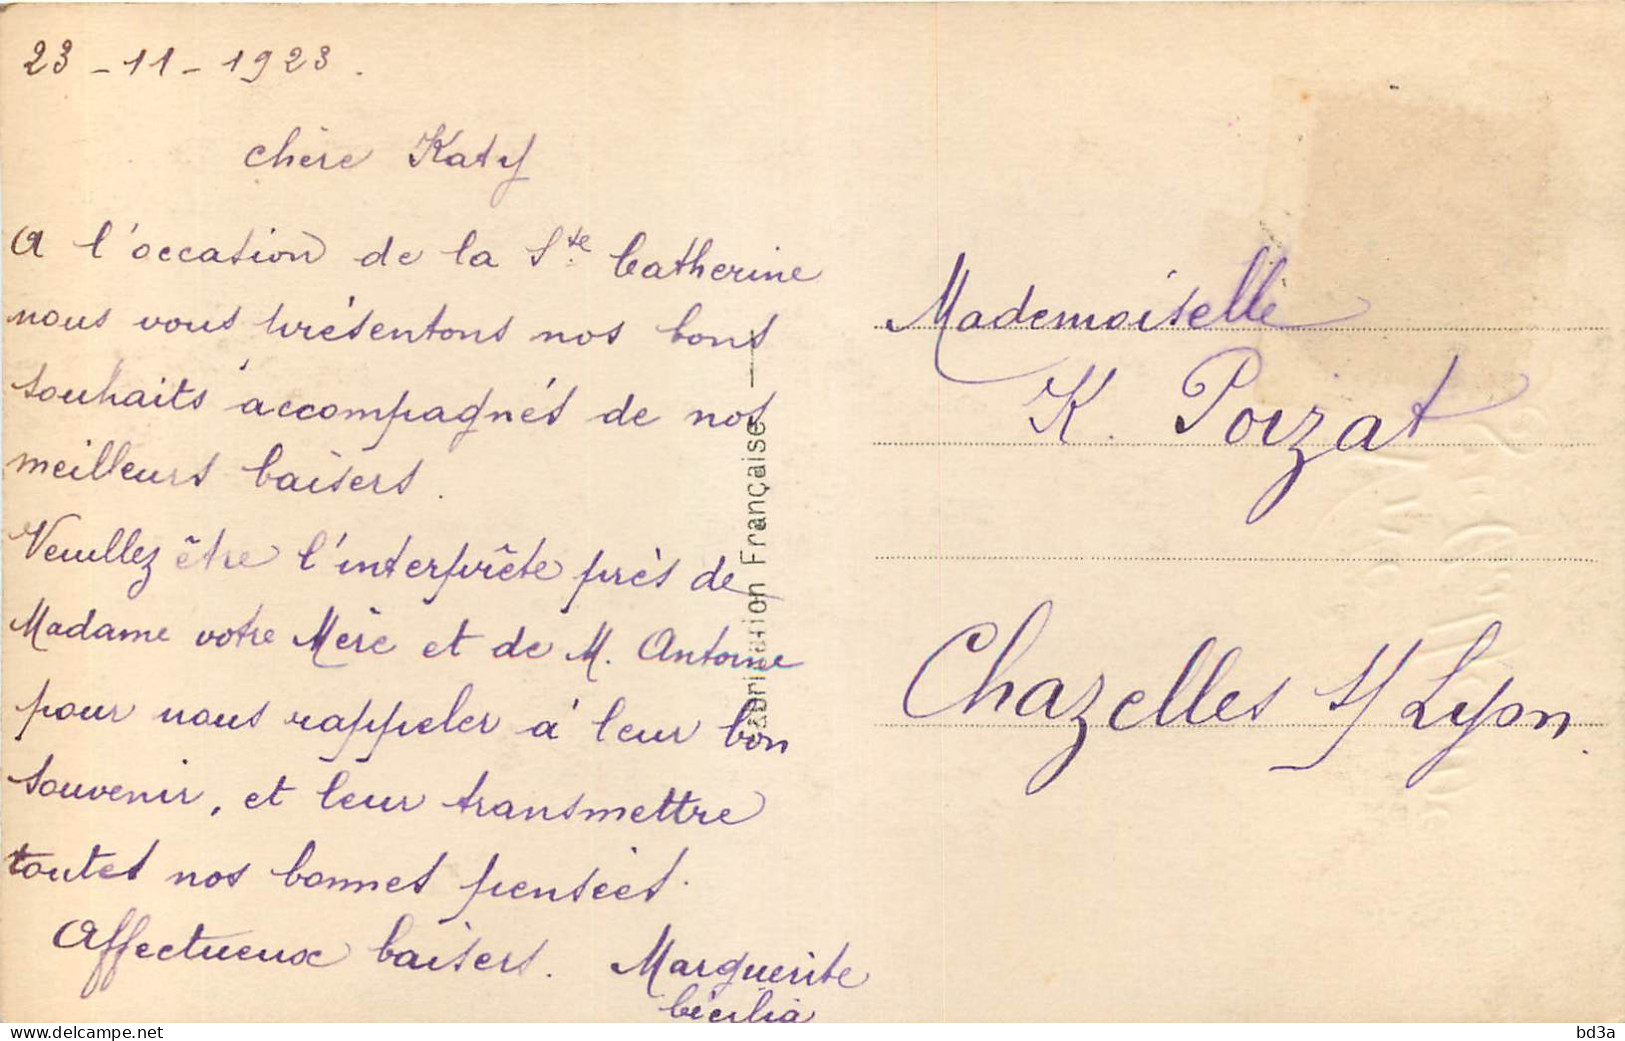 23 - 11 - 1923.
chère Katy
A l'occasion de la Ste Catherine
nous vous présentons nos bons
souhaits accompagnés de nos
meilleurs baisers.
Veuillez être l'interprète près de
Madame votre Mère et de M. Antoine
pour nous rappeler à leur bon
souvenir, et leur transmettre
toutes nos bonnes pensées.
Affectueux baisers. Marguerite
Cécilia
Fabrication Française
Mademoiselle
K. Poizat
Chazelles s/ Lyon.
www.delcampe.net
bd3a